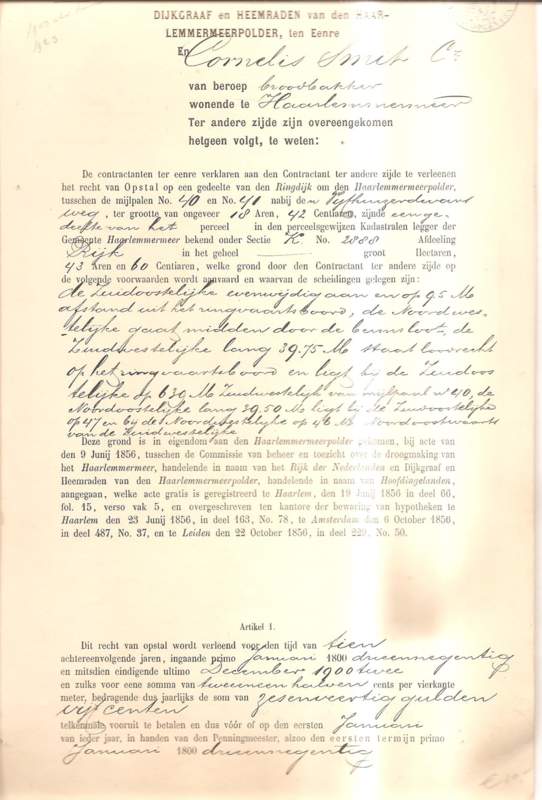 DIJKGRAAF en HEEMRADEN van den HAAR-
LEMMERMEERPOLDER, ten Eenre
En Cornelis Smit Cz
van beroep broodbakker
wonende te Haarlemmermeer
Ter andere zijde zijn overeengekomen
hetgeen volgt, te weten:
De contractanten ter eenre verklaren aan den Contractant ter andere zijde te verleenen
het recht van Opstal op een gedeelte van den Ringdijk om den Haarlemmermeerpolder,
tusschen de mijlpalen No. 40 en No. 41 nabij den Vijfhuizerdwars
weg, ter grootte van ongeveer 18 Aren, 42 Centiaren, zijnde een ge-
deelte van het perceel in den perceelsgewijzen Kadastralen legger der
Gemeente Haarlemmermeer bekend onder Sectie K. No. 2888 Afdeeling
Rijk in het geheel groot Hectaren,
43 Aren en 60 Centiaren, welke grond door den Contractant ter andere zijde op
de volgende voorwaarden wordt aanvaard en waarvan de scheidingen gelegen zijn:
de Zuidoostelijke evenwijdig aan en op 9.5 M
afstand uit het ringvaartsboord, de Noordwes-
telijke gaat midden door de bermsloot, de
Zuidwestelijke lang 39.75 M staat loodrecht
op het ringvaartsboord en ligt bij de Zuidoos
telijke op 630 M Zuidwestelijk van mijlpaal no 40, de
Noordoostelijke lang 39,50 M ligt bij de Zuidoostelijke
op 47 en bij de Noordwestelijke op 46 M Noordoostwaarts
van de Zuidwestelijke
Deze grond is in eigendom aan den Haarlemmermeerpolder gekomen, bij acte van
den 9 Junij 1856, tusschen de Commissie van beheer en toezicht over de droogmaking van
het Haarlemmermeer, handelende in naam van het Rijk der Nederlanden en Dijkgraaf en
Heemraden van den Haarlemmermeerpolder, handelende in naam van Hoofdingelanden,
aangegaan, welke acte gratis is geregistreerd te Haarlem, den 19 Junij 1856 in deel 66,
fol. 15, verso vak 5, en overgeschreven ten kantore der bewaring van hypotheken te
Haarlem den 23 Junij 1856, in deel 163, No. 78, te Amsterdam den 6 October 1856,
in deel 487, No. 37, en te Leiden den 22 October 1856, in deel 229, No. 50.
Artikel 1.
Dit recht van opstal wordt verleend voor den tijd van tien
achtereenvolgende jaren, ingaande primo Januari 1800 drieennegentig
en mitsdien eindigende ultimo December 1900 twee
en zulks voor eene somma van twee en een halven cents per vierkante
meter, bedragende dus jaarlijks de som van zesenveertig gulden
vijf centen
telkenmale vooruit te betalen en dus vóór of op den eersten Januari
van ieder jaar, in handen van den Penningmeester, alzoo den eersten termijn primo
Januari 1800 drieennegentig